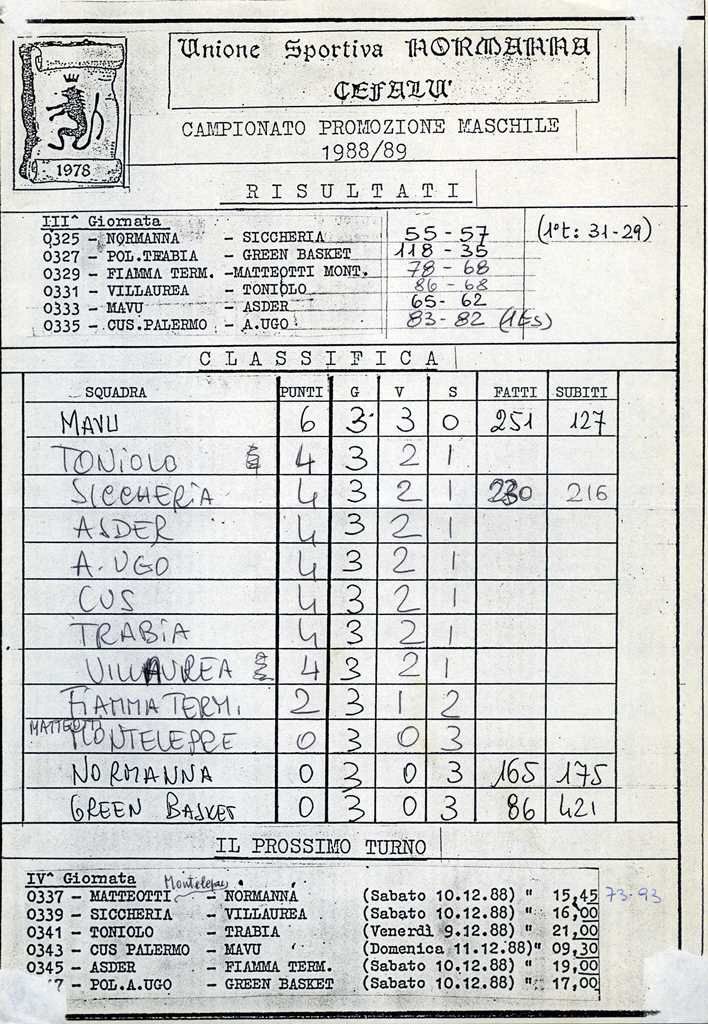 Unione Sportiva NORMANNA
CEFALU'
CAMPIONATO PROMOZIONE MASCHILE
1988/89
1978
RISULTATI
III^ Giornata
0325 - NORMANNA - SICCHERIA 55 - 57 (1°t: 31-29)
0327 - POL.TRABIA - GREEN BASKET 118 - 35
0329 - FIAMMA TERM. -MATTEOTTI MONT. 78 - 68
0331 - VILLAUREA - TONIOLO 86 - 68
0333 - MAVU - ASDER 65 - 62
0335 - CUS.PALERMO - A.UGO 83 - 82 (1Es)
CLASSIFICA
SQUADRA PUNTI G V S FATTI SUBITI
MAVU 6 3 3 0 251 127
TONIOLO 4 3 2 1
SICCHERIA 4 3 2 1 230 216
ASDER 4 3 2 1
A. UGO 4 3 2 1
CUS 4 3 2 1
TRABIA 4 3 2 1
VILLAUREA 4 3 2 1
FIAMMA TERMI. 2 3 1 2
MATTEOTTI MONTELEPRE 0 3 0 3
NORMANNA 0 3 0 3 165 175
GREEN BASKET 0 3 0 3 86 421
IL PROSSIMO TURNO
IV^ Giornata
0337 - MATTEOTTI Montelepre - NORMANNA (Sabato 10.12.88) " 15,45 73-93
0339 - SICCHERIA - VILLAUREA (Sabato 10.12.88) " 16,00
0341 - TONIOLO - TRABIA (Venerdì 9.12.88) " 21,00
0343 - CUS PALERMO - MAVU (Domenica 11.12.88)" 09,30
0345 - ASDER - FIAMMA TERM. (Sabato 10.12.88) " 19,00
7 - POL.A.UGO - GREEN BASKET (Sabato 10.12.88) " 17,00